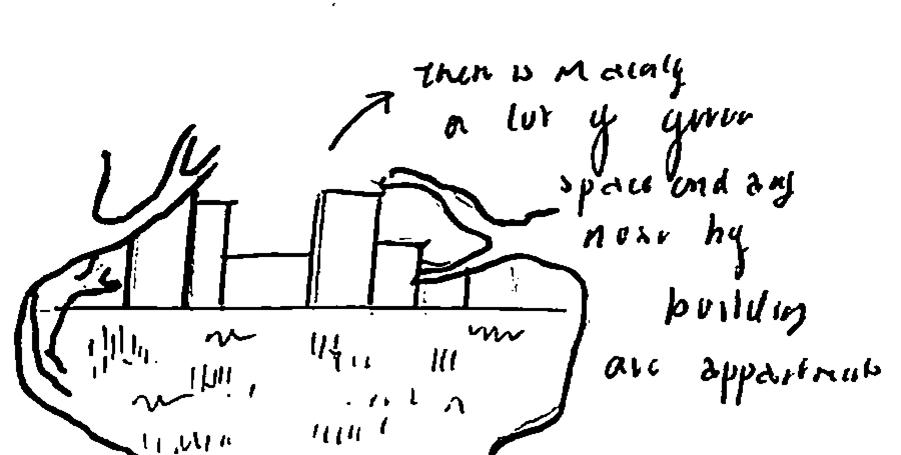 there is
a lot of green
space and any
near by
building
are appartments